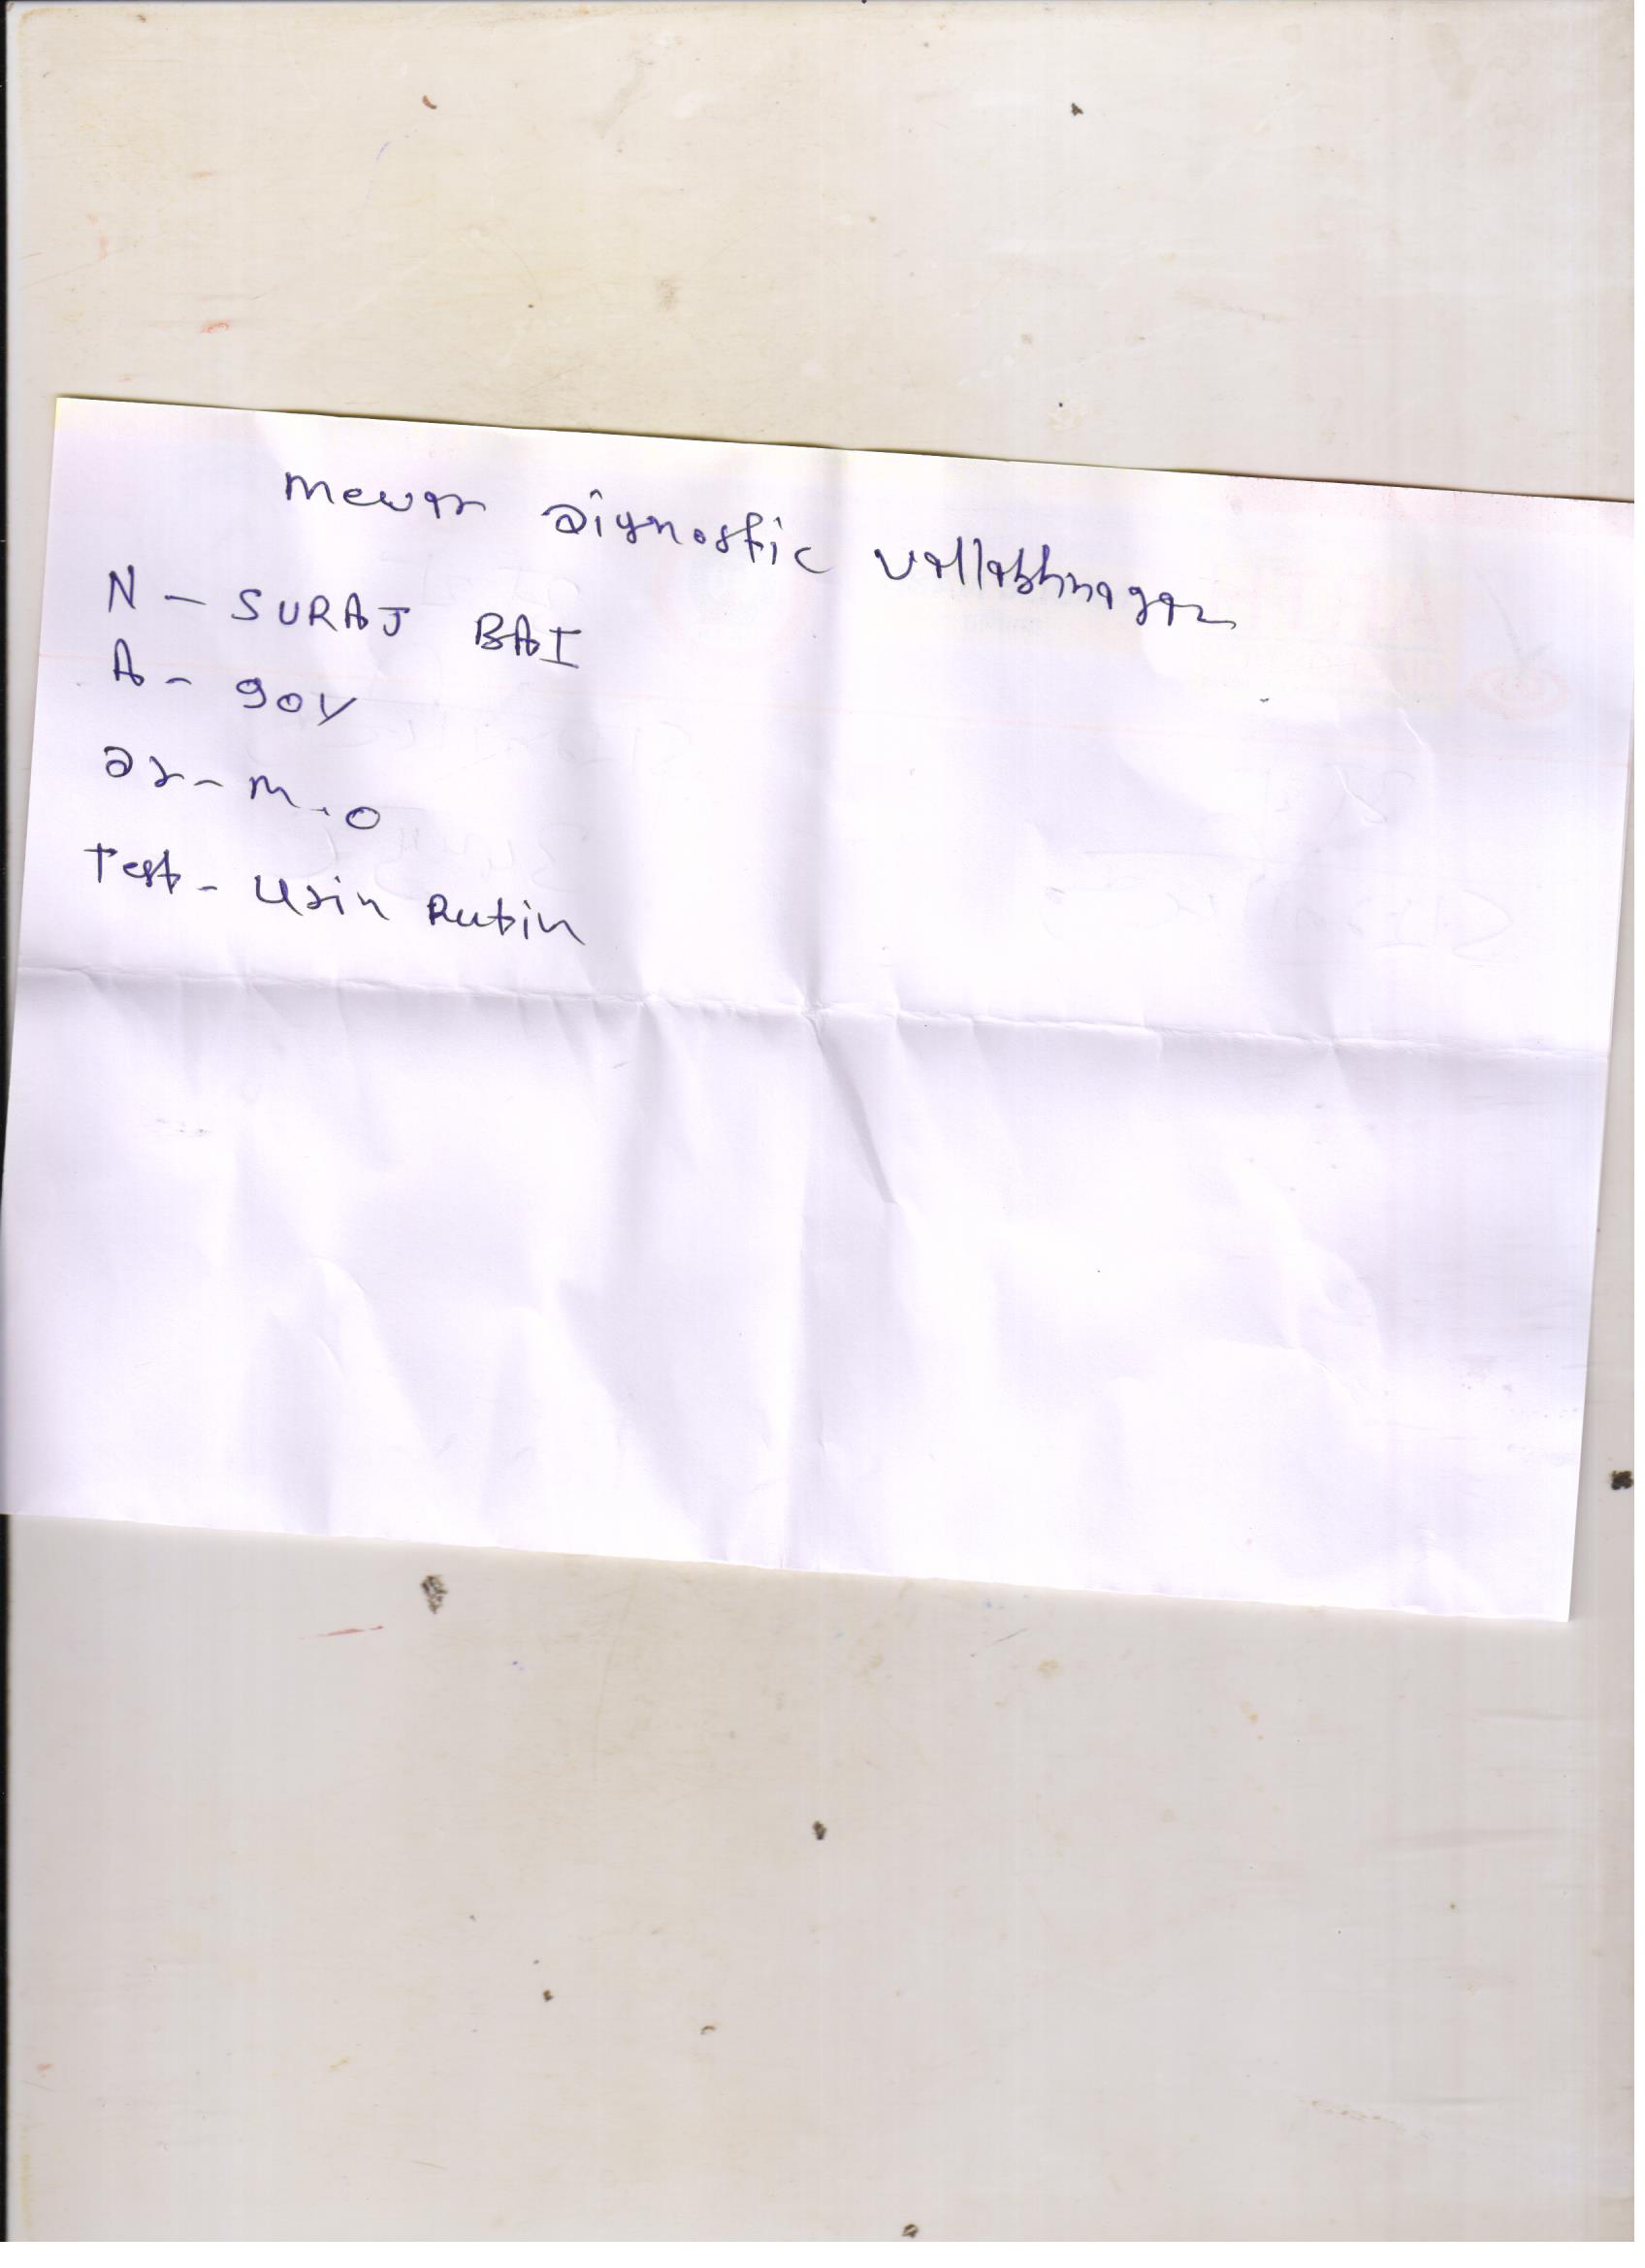 mewar Dignostic vallabhnagar
N - SURAJ BAI
A - 90Y
Dr - M.O
Test - Urin Rutin